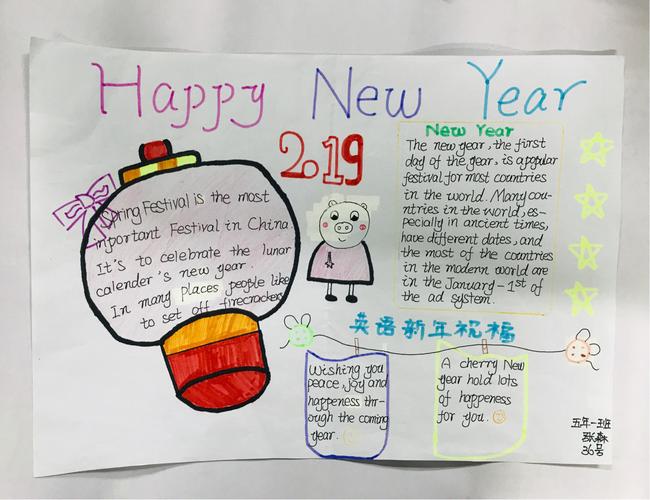 Happy New Year
2.19
Spring Festival is the most
inportant Festival in China.
It's to celebrate the lunar
calender's new year.
In many places people like
to set off firecrackers
New Year
The new year, the first
day of the year, is a popular
festival for most countries
in the world. Many cou-
ntries in the world, es-
pecially in ancient times,
have different dates, and
the most of the countries
in the modern world are
in the January-1st of
the ad system.
英语新年祝福
Wishing you
peace, joy and
happeness thr-
ough the coming
year.
A cherry New
year hold lots
of happeness
for you.
五年一班
张森
36号